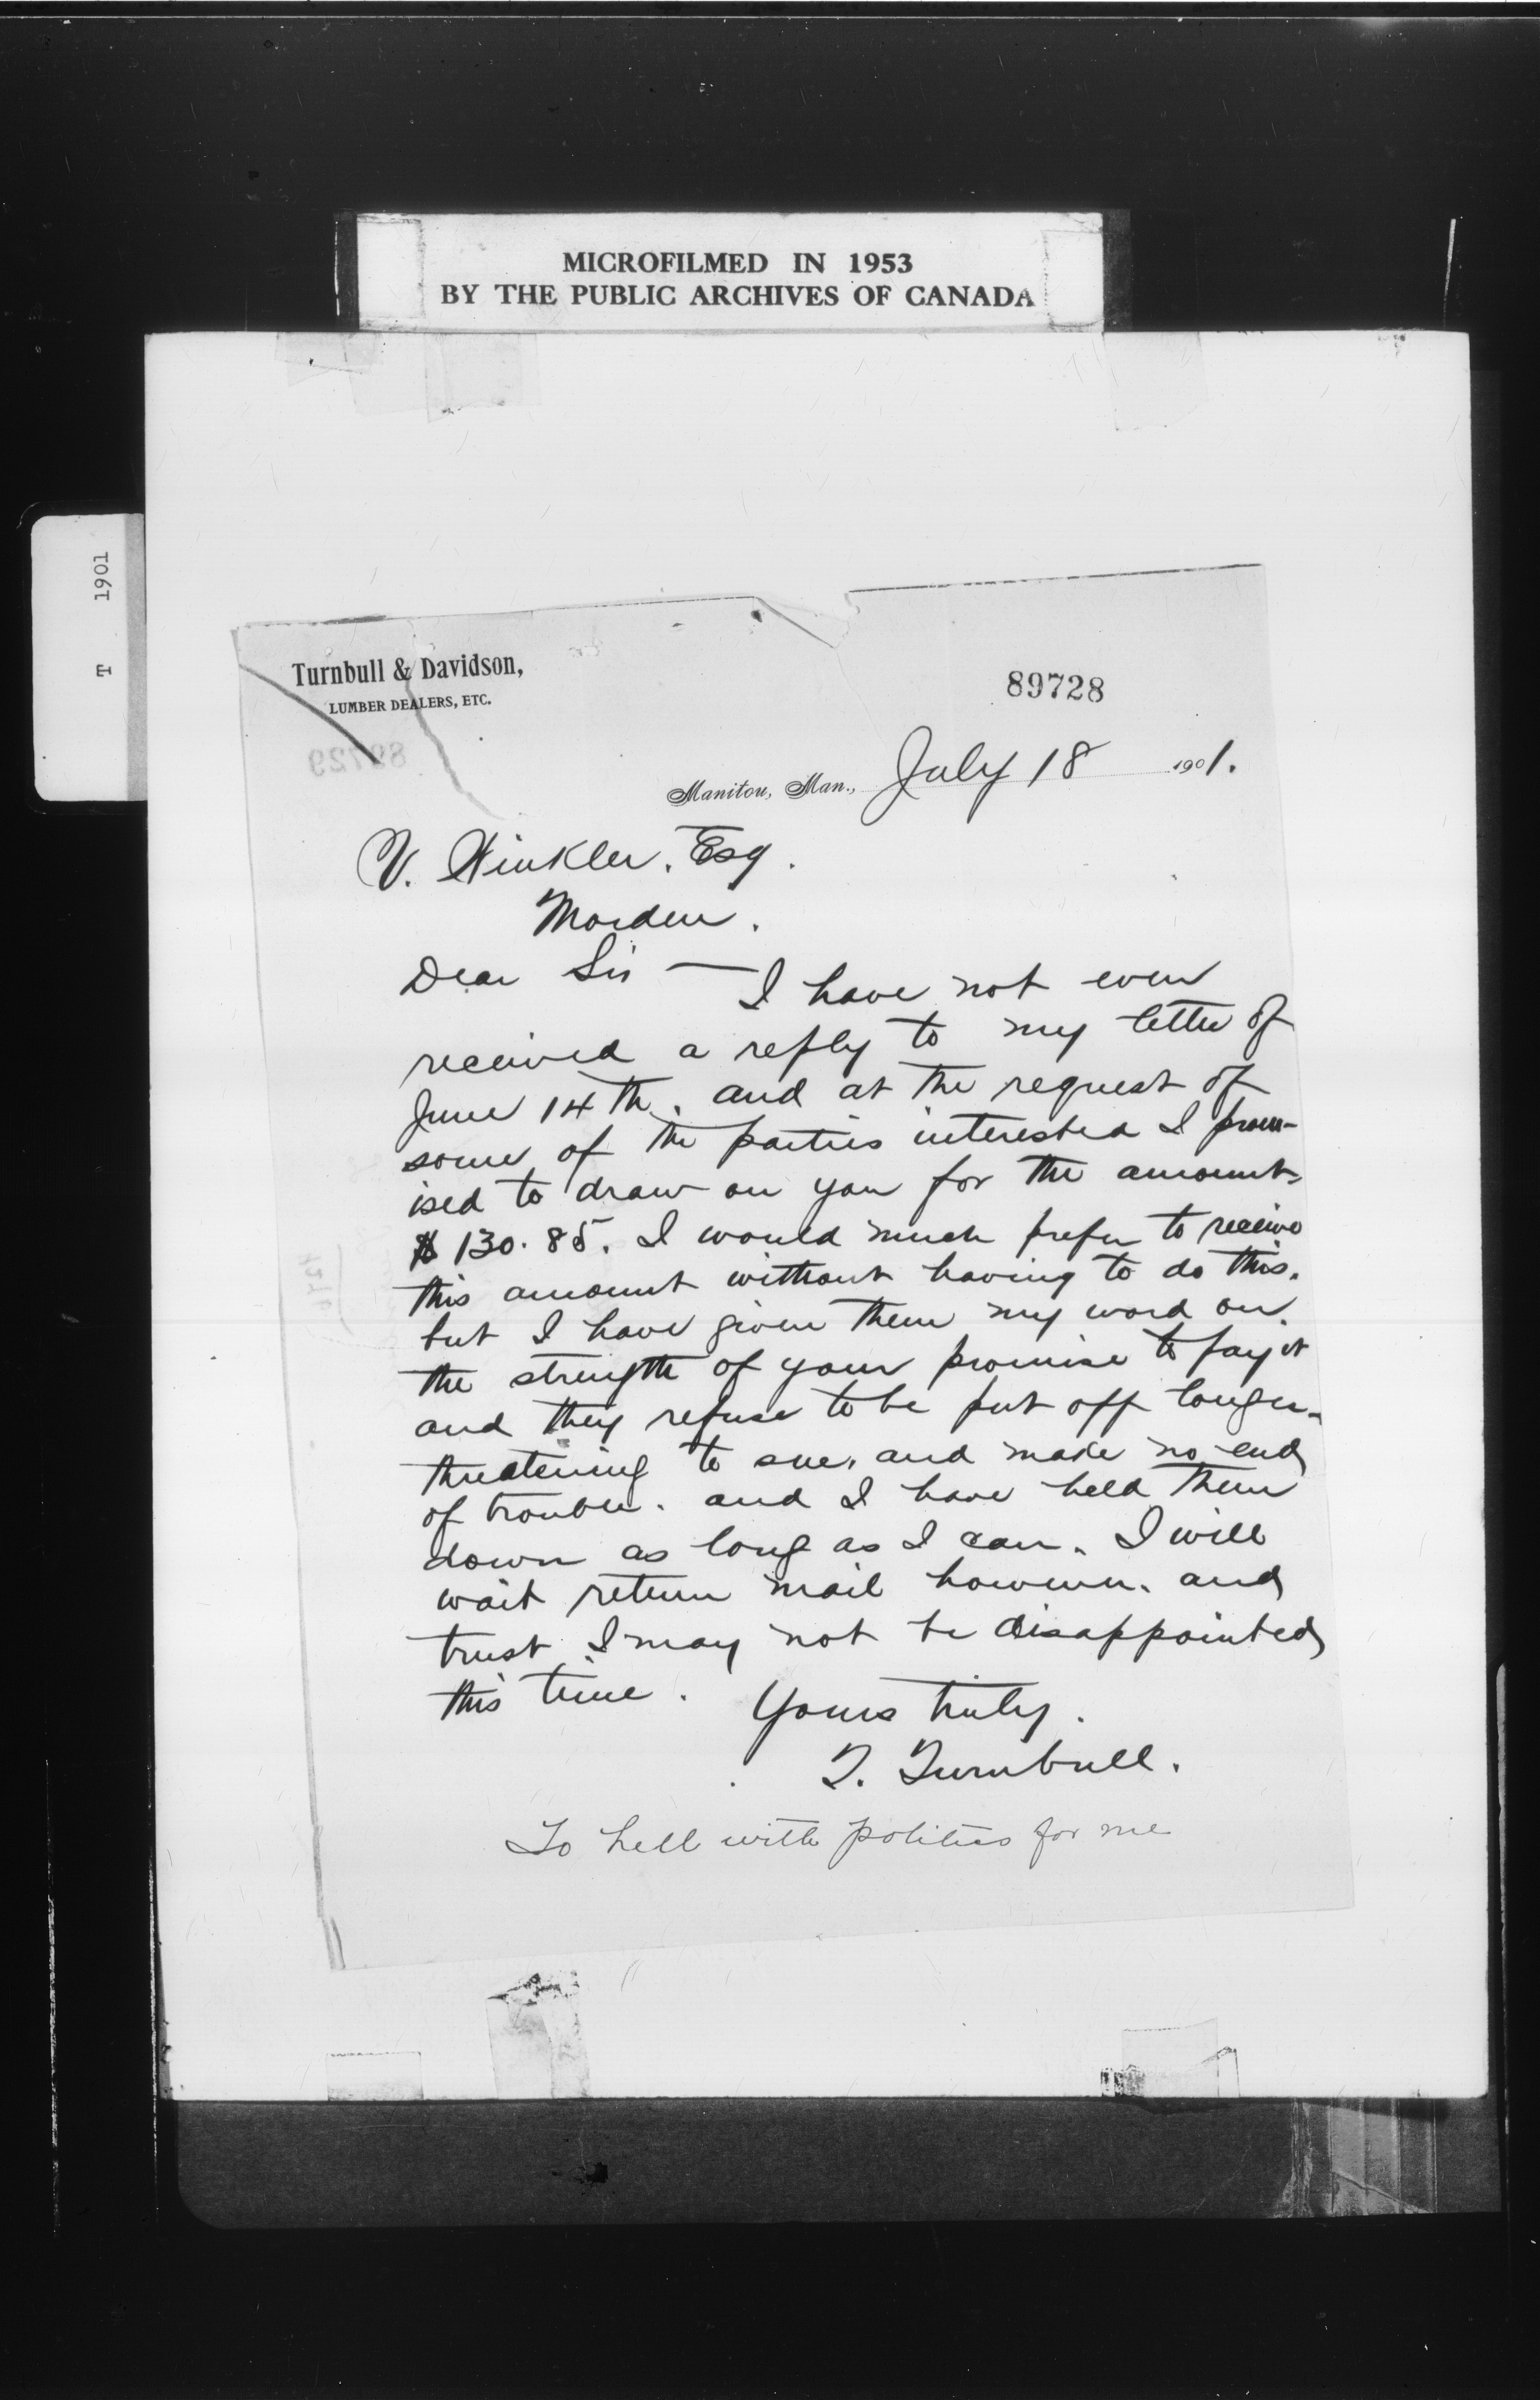 MICROFILMED IN 1953
BY THE PUBLIC ARCHIVES OF CANADA
T 1901
Turnbull & Davidson,
LUMBER DEALERS, ETC.
89728
89729
Manitou, Man., July 18 1901.
V. Winkler. Esq.
Morden.
Dear Sir — I have not even
received a reply to my letter of
June 14th. and at the request of
some of the parties interested I prom-
ised to draw on you for the amount
$130.85. I would much prefer to receive
this amount without having to do this.
but I have given them my word on
the strength of your promise to pay it
and they refuse to be put off longer-
threatening to sue. and make no end
of trouble. and I have held them
down as long as I can. I will
wait return mail however. and
trust I may not be disappointed
this time. Yours truly.
T. Turnbull.
To hell with politics for me